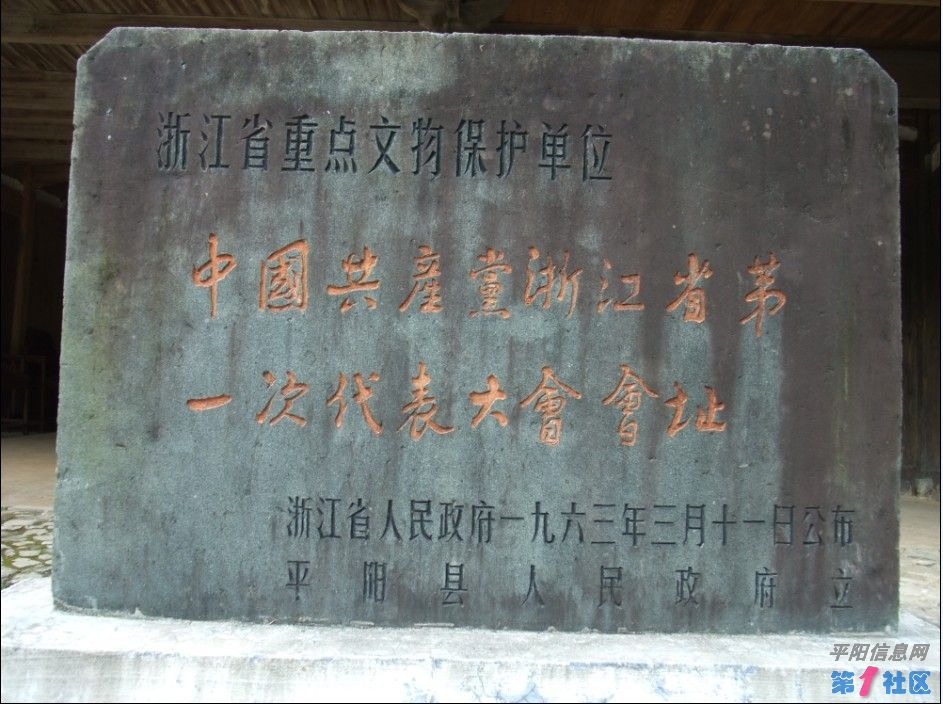 浙江省重点文物保护单位
中國共產黨浙江省苐
一次代表大會會址
浙江省人民政府一九六三年三月十一日公布
平阳县人民政府立
平阳信息网
第1社区